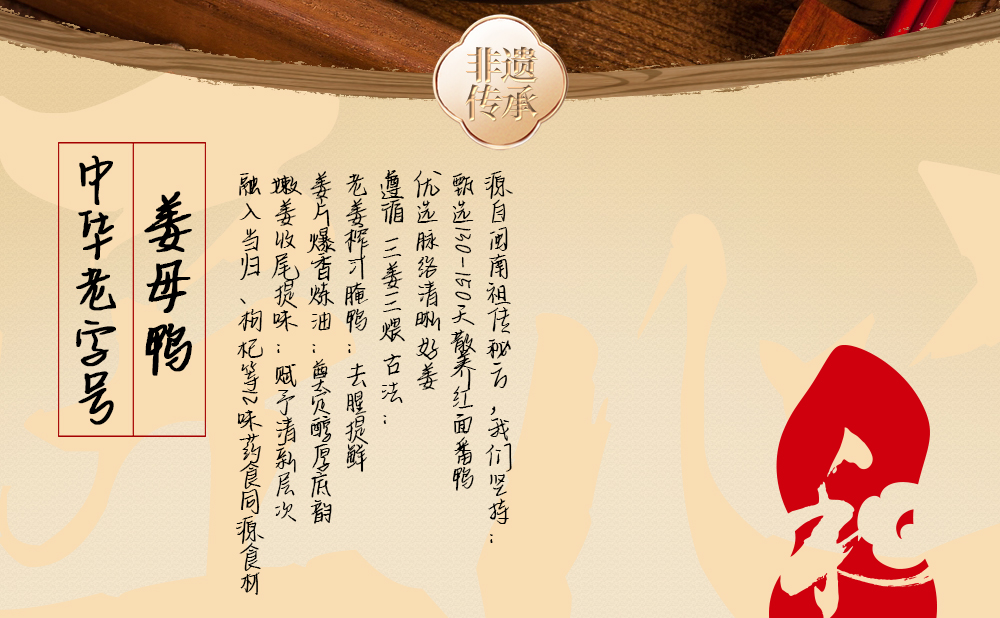 非遗
传承
源自闽南祖传秘方，我们坚持：
甄选130-150天散养红面番鸭
优选脉络清晰好姜
遵循 三姜三煨 古法：
老姜榨汁腌鸭：去腥提鲜
姜片爆香炼油：奠定醇厚底韵
嫩姜收尾提味：赋予清新层次
融入当归、枸杞等12味药食同源食材
姜母鸭
中华老字号